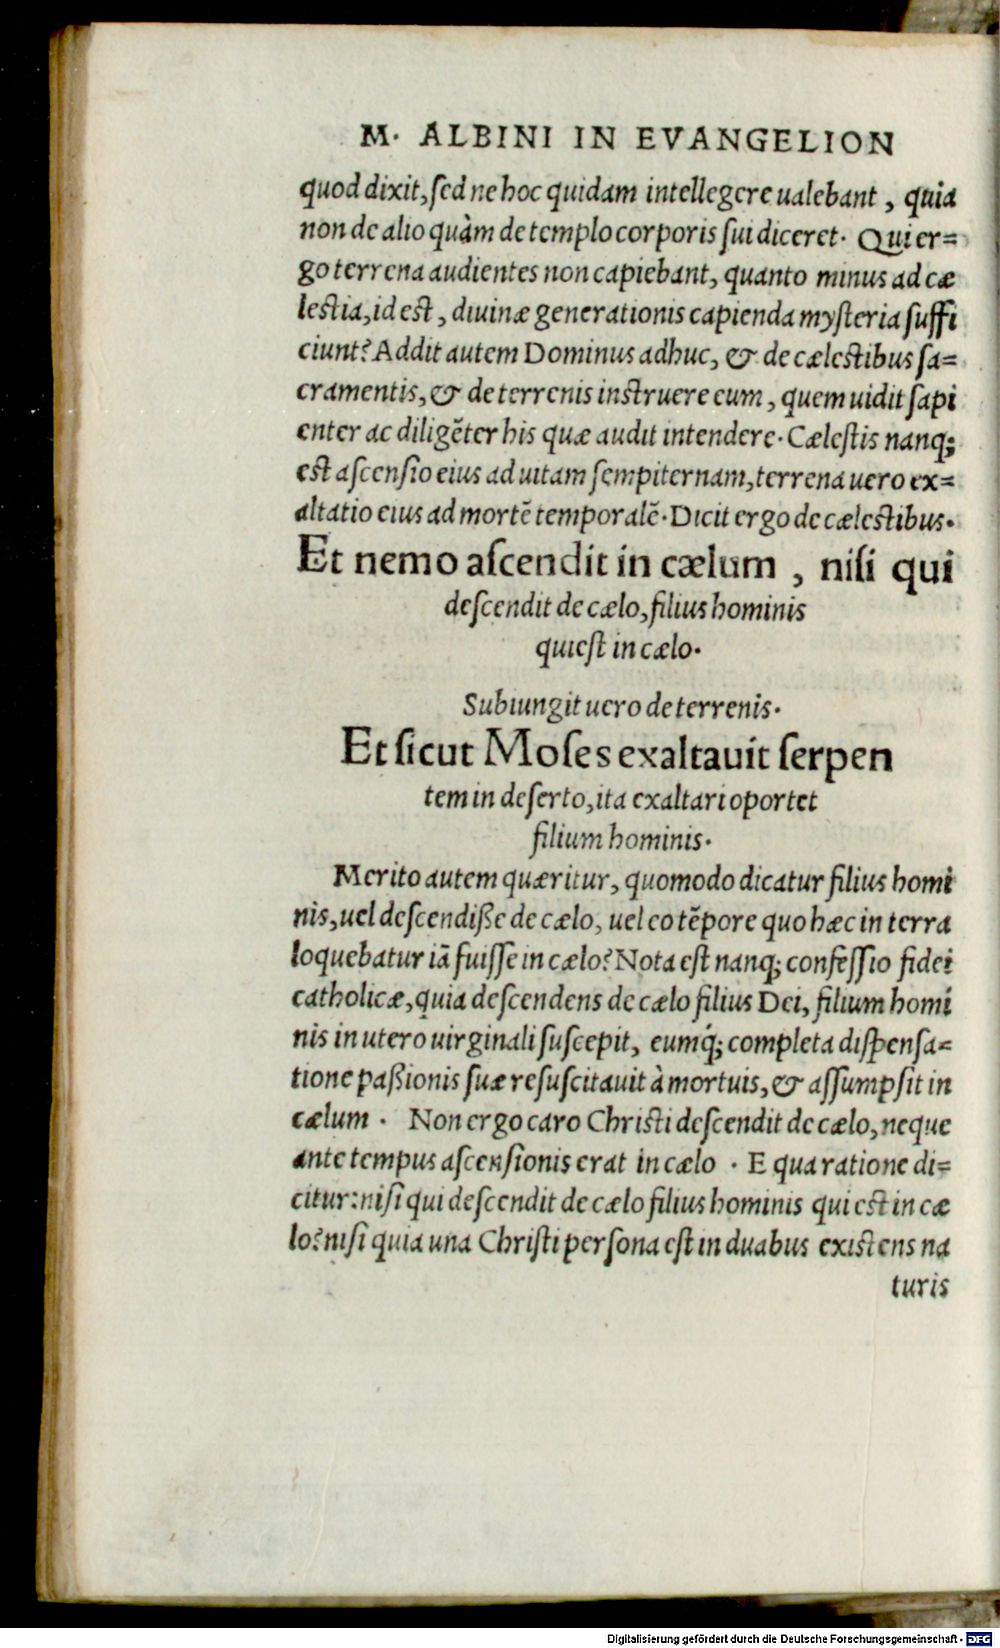 M. ALBINI IN EVANGELION
quod dixit, ſed ne hoc quidam intellegere ualebant, quia
non de alio quàm de templo corporis ſui diceret. Qui er=
go terrena audientes non capiebant, quanto minus ad cæ
leſtia, id eſt, diuinæ generationis capienda myſteria ſuffi
ciunt? Addit autem Dominus adhuc, & de cæleſtibus ſa=
cramentis, & de terrenis inſtruere eum, quem uidit ſapi
enter ac diligẽter his quæ audit intendere. Cæleſtis nanq;
eſt aſcenſio eius ad uitam ſempiternam, terrena uero ex=
altatio eius ad mortẽ temporalẽ. Dicit ergo de cæleſtibus.
Et nemo aſcendit in cælum, niſi qui
deſcendit de cælo, filius hominis
qui eſt in cælo.
Subiungit uero de terrenis.
Et ſicut Moſes exaltauit ſerpen
tem in deſerto, ita exaltari oportet
filium hominis.
Merito autem quæritur, quomodo dicatur filius homi
nis, uel deſcendiße de cælo, uel eo tẽpore quo hæc in terra
loquebatur iã fuiſſe in cælo? Nota eſt nanq; confeſſio fidei
catholicæ, quia deſcendens de cælo filius Dei, filium homi
nis in utero uirginali ſuſcepit, eumq́; completa diſpenſa=
tione paßionis ſuæ reſuſcitauit à mortuis, & aſſumpſit in
cælum. Non ergo caro Chriſti deſcendit de cælo, neque
ante tempus aſcenſionis erat in cælo. E qua ratione di=
citur: niſi qui deſcendit de cælo filius hominis qui eſt in cæ
lo? niſi quia una Chriſti perſona eſt in duabus exiſtens na
turis
Digitalisierung gefördert durch die Deutsche Forschungsgemeinschaft - DFG